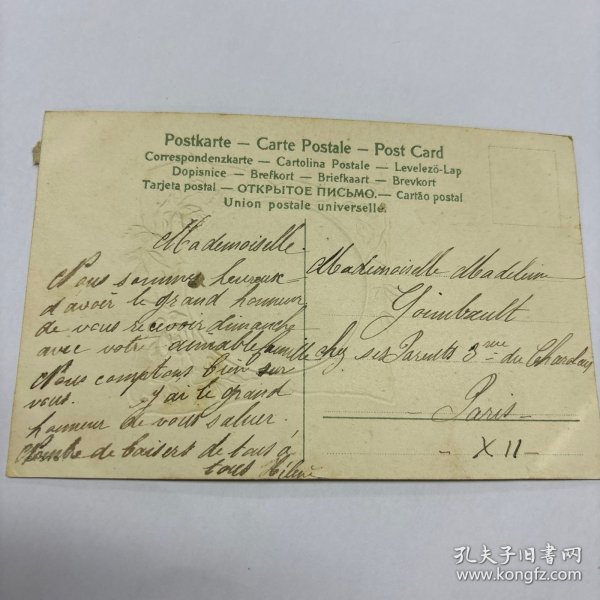 Postkarte — Carte Postale — Post Card
Correspondenzkarte — Cartolina Postale — Levelezö-Lap
Dopisnice — Brefkort — Briefkaart — Brevkort
Tarjeta postal — ОТКРЫТОЕ ПИСЬМО. — Cartão postal
Union postale universelle.
Mademoiselle.
Nous sommes heureux
d'avoir le grand honneur
de vous recevoir dimanche
avec votre aimable famille
Nous comptons bien sur
vous. J'ai le grand
honneur de vous saluer.
Nombre de baisers de tous à
tous Hélène
Mademoiselle Madeleine
chez ses Parents 3 rue du Charolais
Paris
XII
孔夫子旧书网
www.kongfz.com